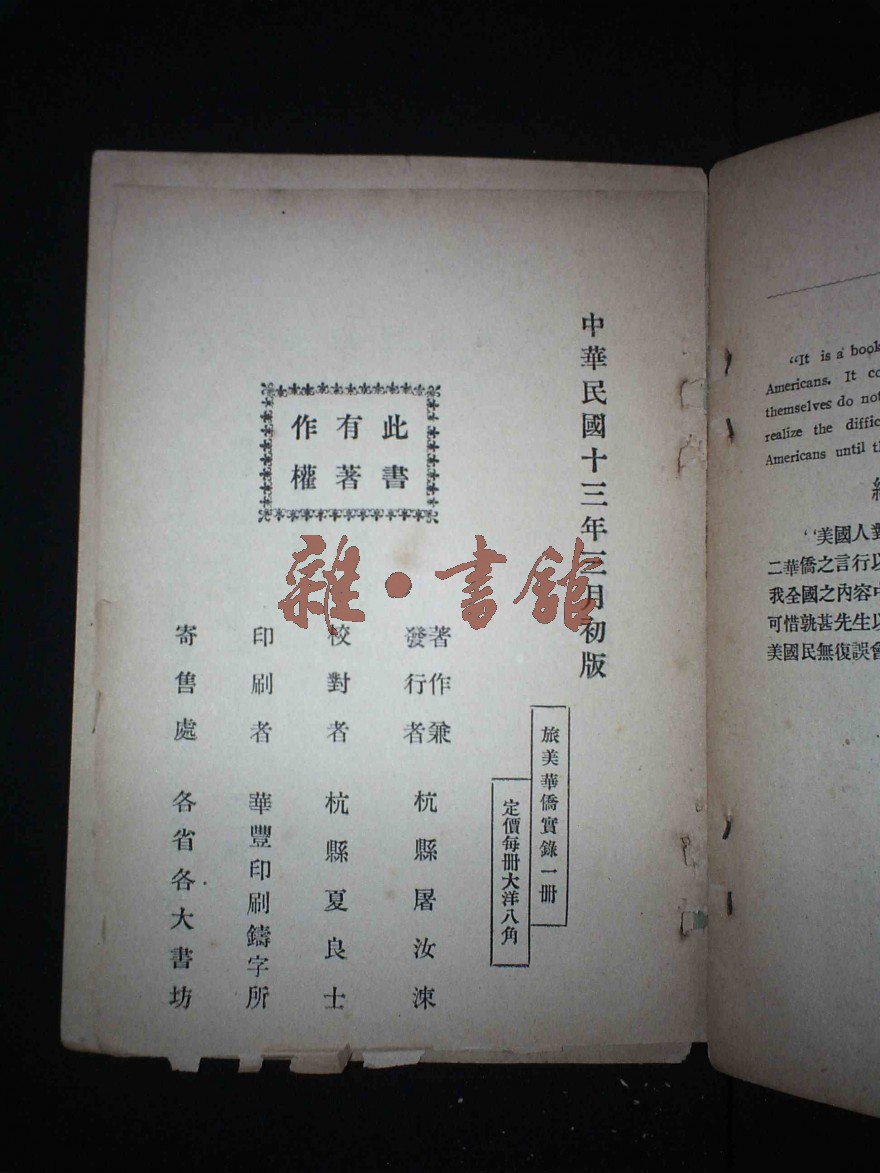 中華民國十三年三月初版
旅美華僑實錄一册
定價每册大洋八角
此書
有著
作權
著作兼
發行者
杭縣屠汝涑
校對者
杭縣夏良士
印刷者
華豐印刷鑄字所
寄售處
各省各大書坊
雜·書館
“It is a book
Americans. It co
themselves do not
realize the diffic
Americans until th
“美國人對
二華僑之言行以
我全國之內容中
可惜孰甚先生以
美國民無復誤會